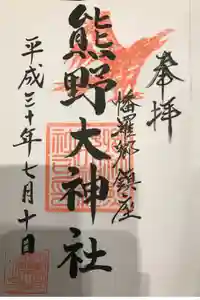 奉拝
幡羅郡鎮座
熊野大神社
平成三十年七月十日